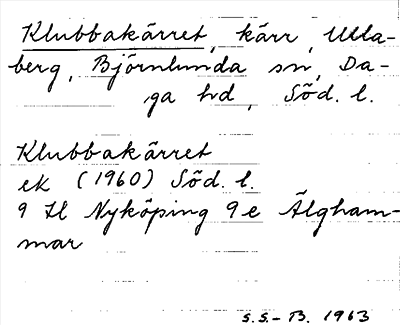 Klubbakärret, kärr, Utla-
berg, Björnlunda sn, Da-
ga hd, Söd. l.
Klubbakärret
ek (1960) Söd. l.
9 H Nyköping 9e Älgham-
mar
S.S.-B. 1963